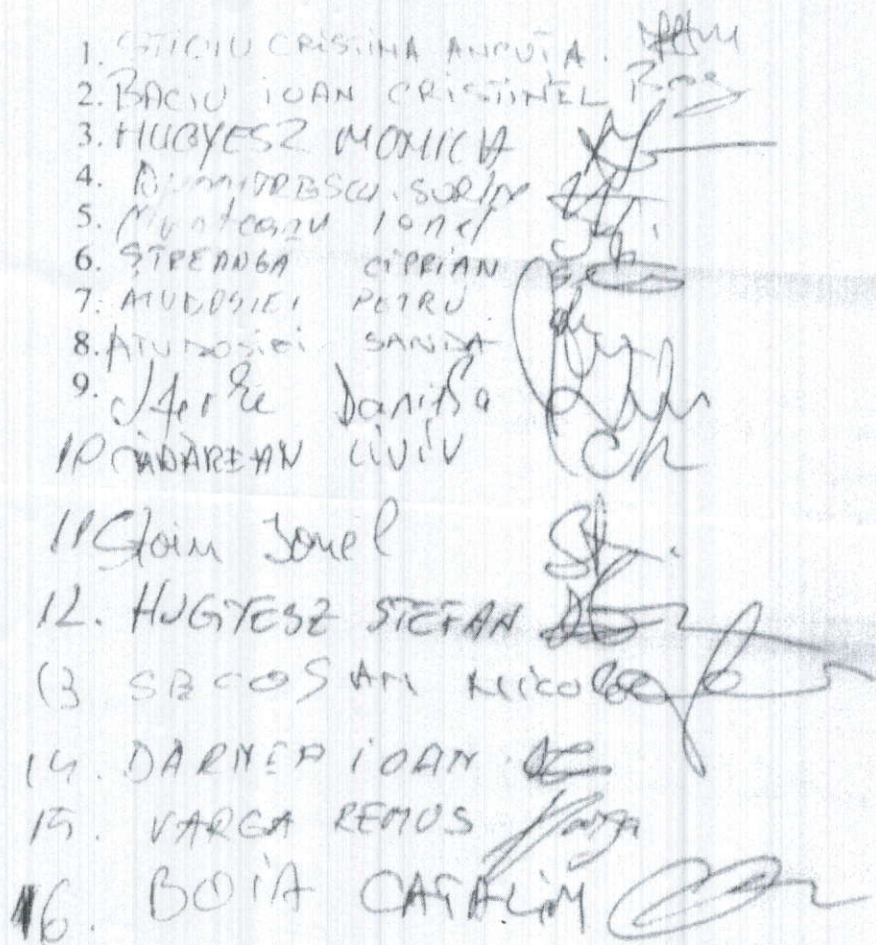 1. STICIU CRISTINA ANCUTA.
2. BACIU IOAN CRISTINEL
3. HUGYESZ MONICA
4. DUMITRESCU SORIN
5. Munteanu Ionel
6. ȘTREANGĂ CIPRIAN
7. ATUDOSIEI PETRU
8. ATUDOSIEI SANDA
9.
10 CĂDĂREAN LIVIU
11 Stoin Ionel
12. HUGYESZ STEFAN
13 SECOSAN Nicolae
14. DARNEA IOAN
15. VARGA REMUS Varga
16. BOIA CATALIN